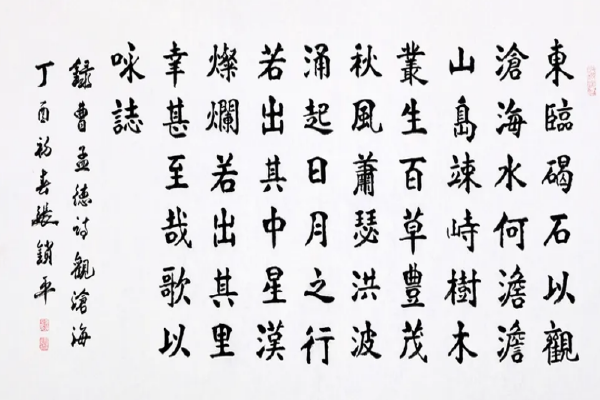 東臨碣石以觀
滄海水何澹澹
山島竦峙樹木
叢生百草豐茂
秋風蕭瑟洪波
涌起日月之行
若出其中星漢
燦爛若出其里
幸甚至哉歌以
咏誌
錄曹孟德詩觀滄海
丁酉初春鎖平